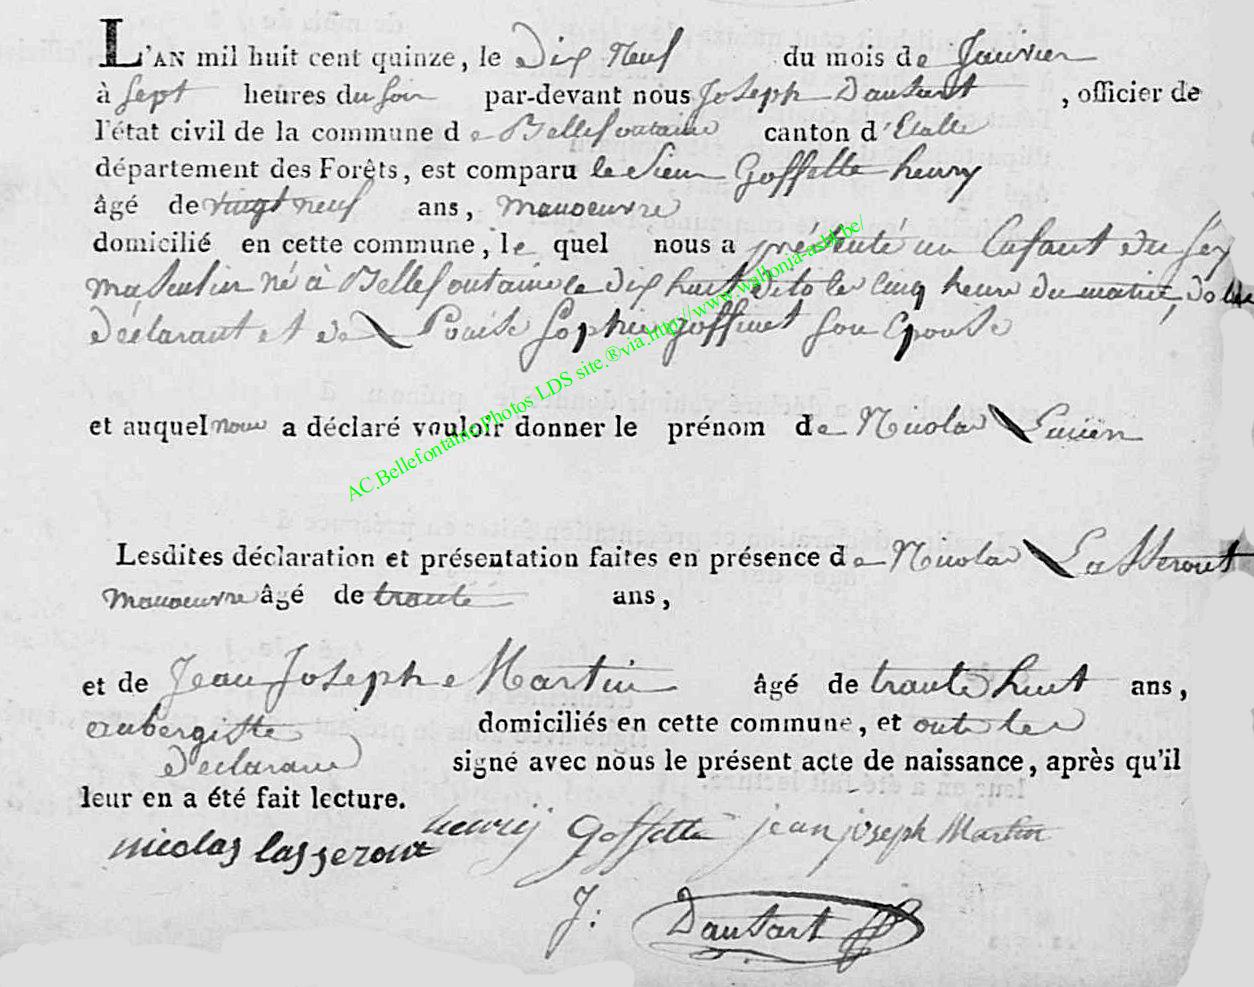 L'AN mil huit cent quinze, le Dix Neuf du mois de Janvier
à Sept heures du Soir par-devant nous Joseph Dautart, officier de
l'état civil de la commune de Bellefontaine canton d'Etalle
département des Forêts, est comparu le Sieur Goffette henry
âgé de vingt neuf ans, manoeuvre
domicilié en cette commune, le quel nous a présenté un Enfant du Sex
masculin né à Bellefontaine le dix huit dito les Cinq heure du matin, de lui
déclarant et de Louise Sophie goffinet son Epouse
et auquel nous a déclaré vouloir donner le prénom de Nicolas Lucien
Lesdites déclaration et présentation faites en présence de Nicolas Lasseront
manoeuvre âgé de trante ans,
et de Jean Joseph Martin âgé de trante huit ans,
aubergiste domiciliés en cette commune, et ont les
déclarans signé avec nous le présent acte de naissance, après qu'il
leur en a été fait lecture.
henrij Goffette jean joseph Martin
nicolas lasseront
J: Dautart
AC.Bellefontaine.Photos LDS site.®via.http://www.wallonia-asbl.be/